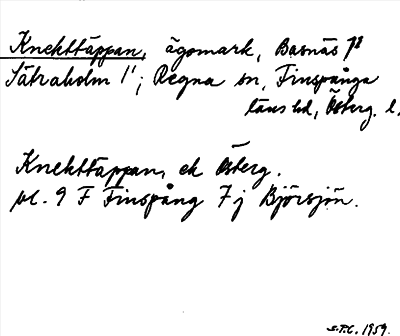 Knekttäppan, ägomark, Basnäs 1²
Sätraholm 1¹; Regna sn, Finspånga
läns hd, Österg. l.
Knekttäppan, ek Österg.
bl. 9 F Finspång 7 j Björsjön.
S.T.C. 1959.